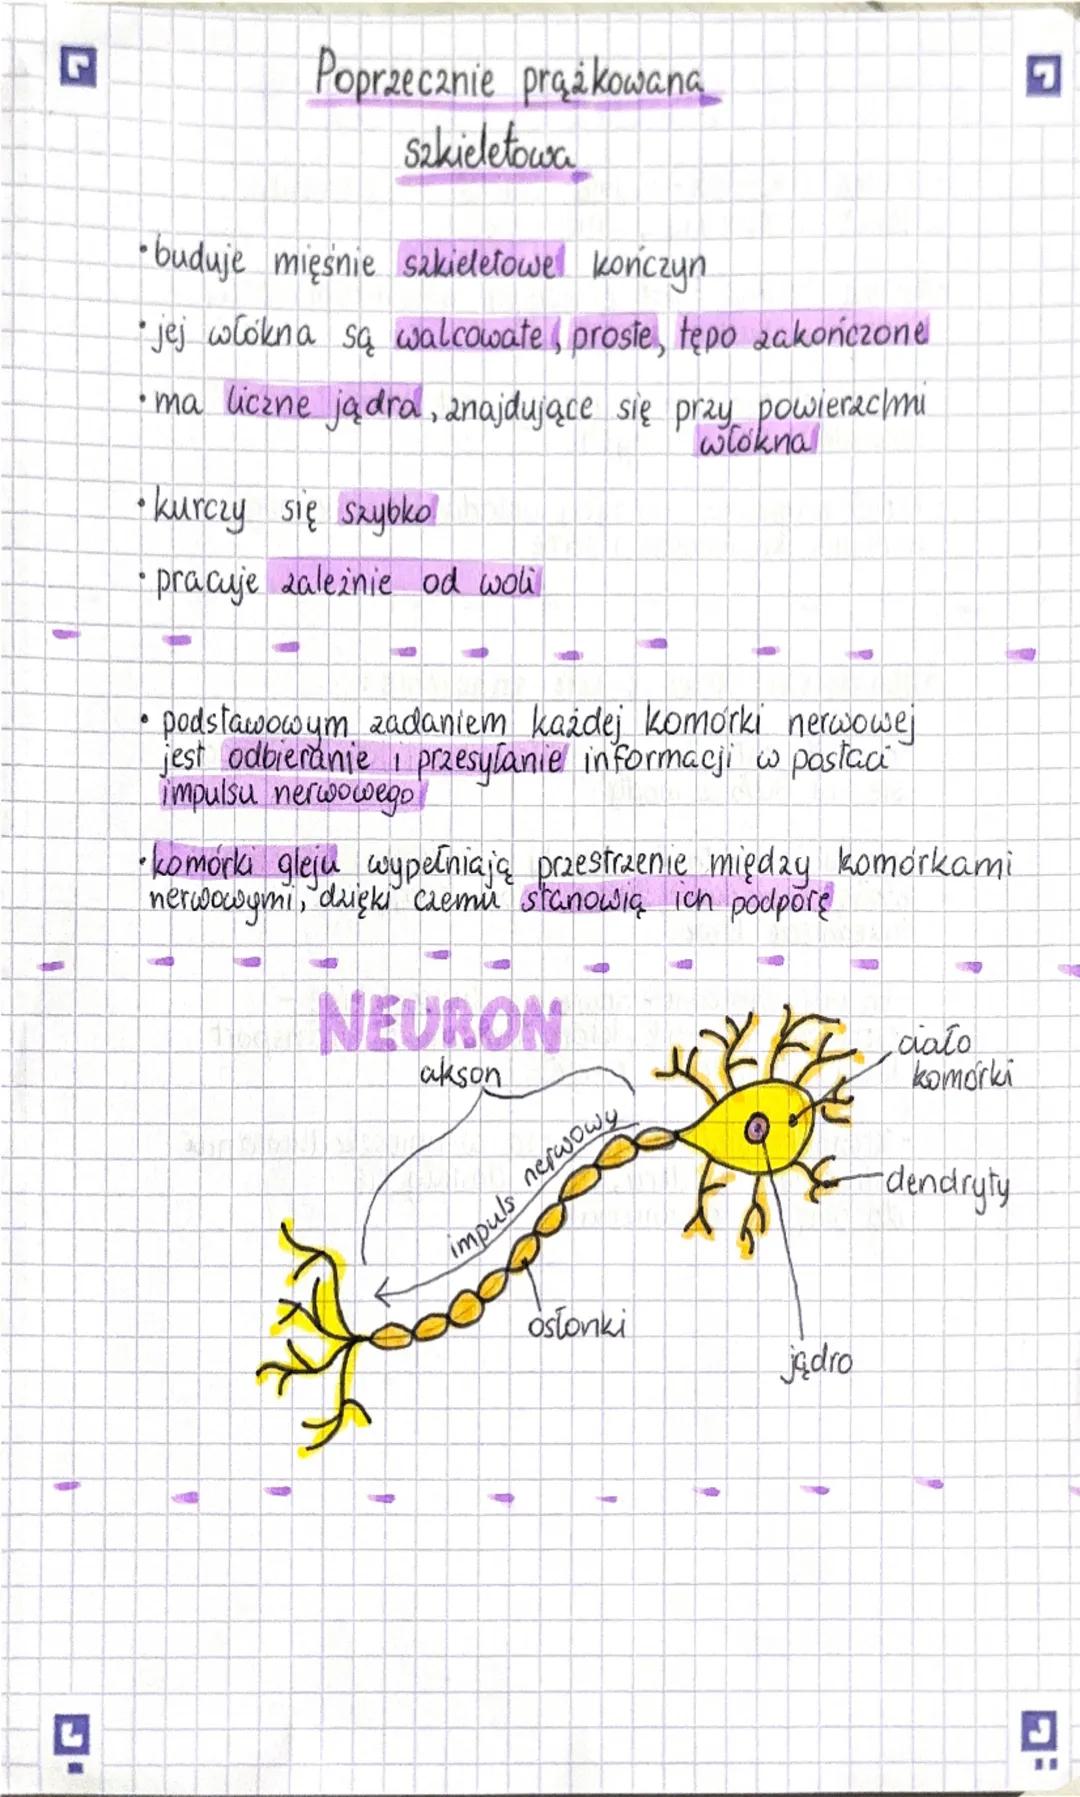 Poprzecznie prążkowana
szkieletowa
• buduje mięśnie szkieletowe kończyn
• jej włókna są walcowate, proste, tępo zakończone
• ma liczne jądra, znajdujące się przy powierzchni
włókna
• kurczy się szybko
• pracuje zależnie od woli
• podstawowym zadaniem każdej komórki nerwowej
jest odbieranie i przesyłanie informacji w postaci
impulsu nerwowego
• komórki gleju wypełniają przestrzenie między komórkami
nerwowymi, dzięki czemu stanowią ich podporę
NEURON
akson
ciało
komórki
impuls nerwowy
dendryty
osłonki
jądro